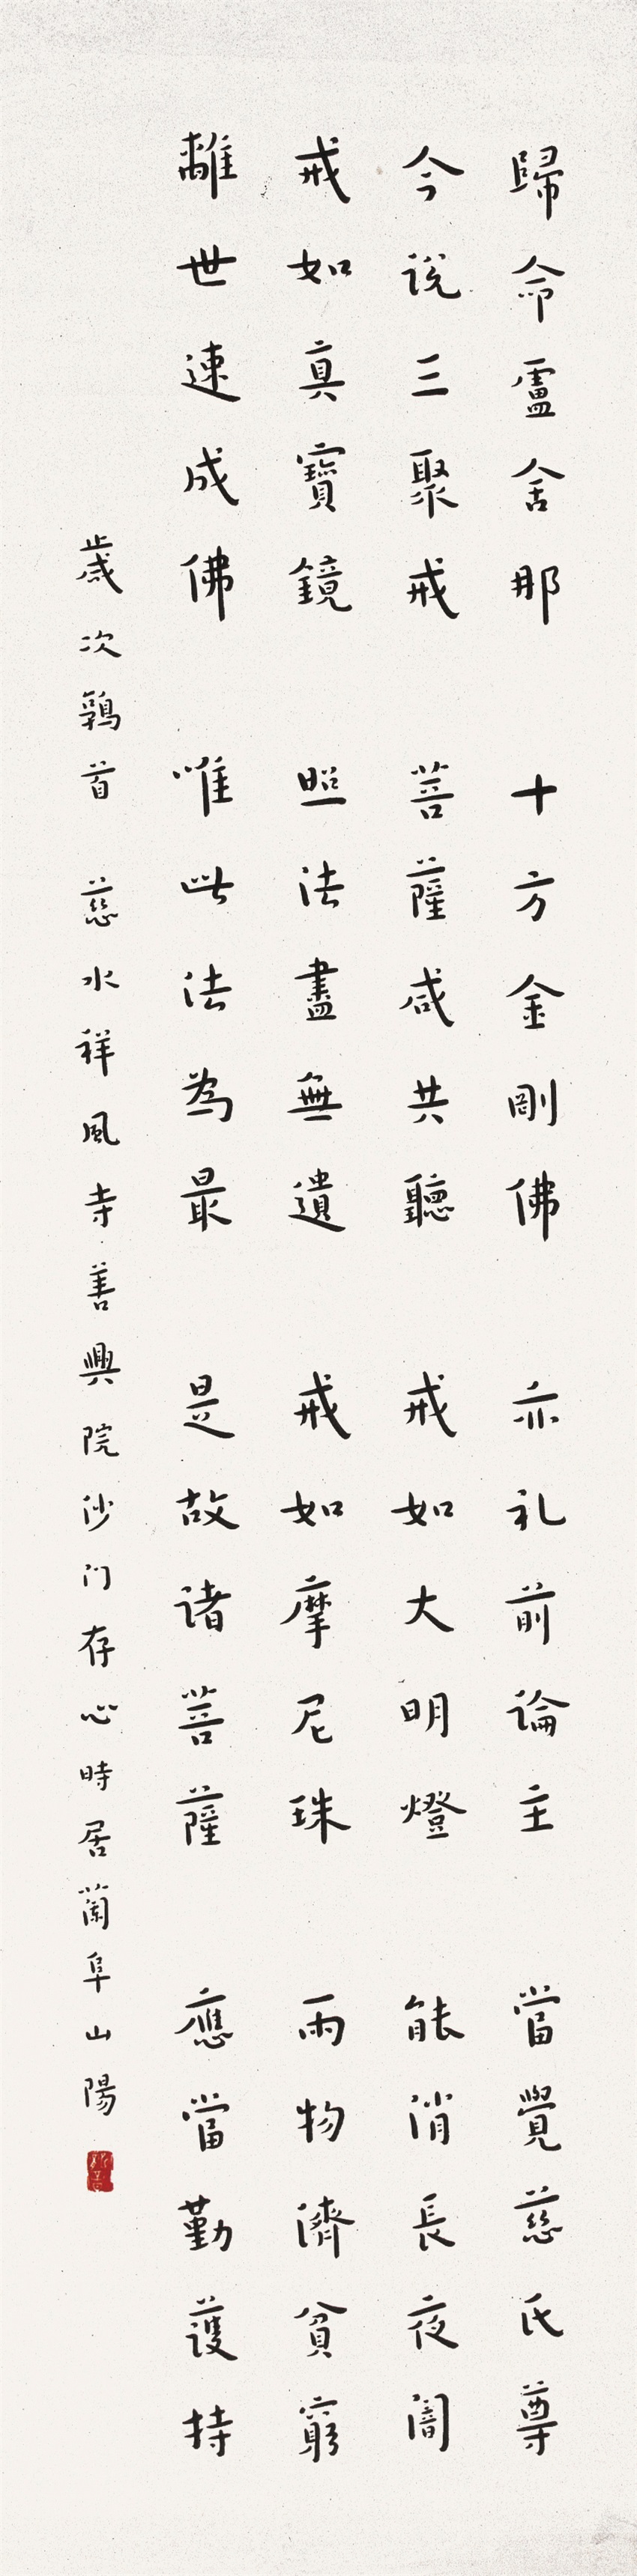 歸命盧舍那 十方金剛佛 亦礼前論主 當覺慈氏尊
今説三聚戒 菩薩咸共聽 戒如大明燈 能消長夜闇
戒如真寶鏡 照法盡無遺 戒如摩尼珠 雨物濟貧窮
離世速成佛 唯此法為最 是故諸菩薩 應當勤護持
歲次鶉首 慈水祥風寺善興院沙门存心時居蘭阜山陽